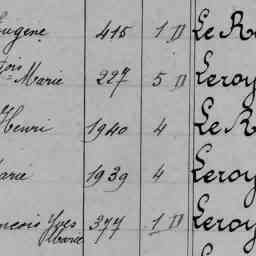 Eugène 415 1 D Le R
ois Marie 227 5 D Leroy
Henri 1940 4 Le R
arie 1939 4 Leroy
ncois Yves Marie 377 1 D Leroy